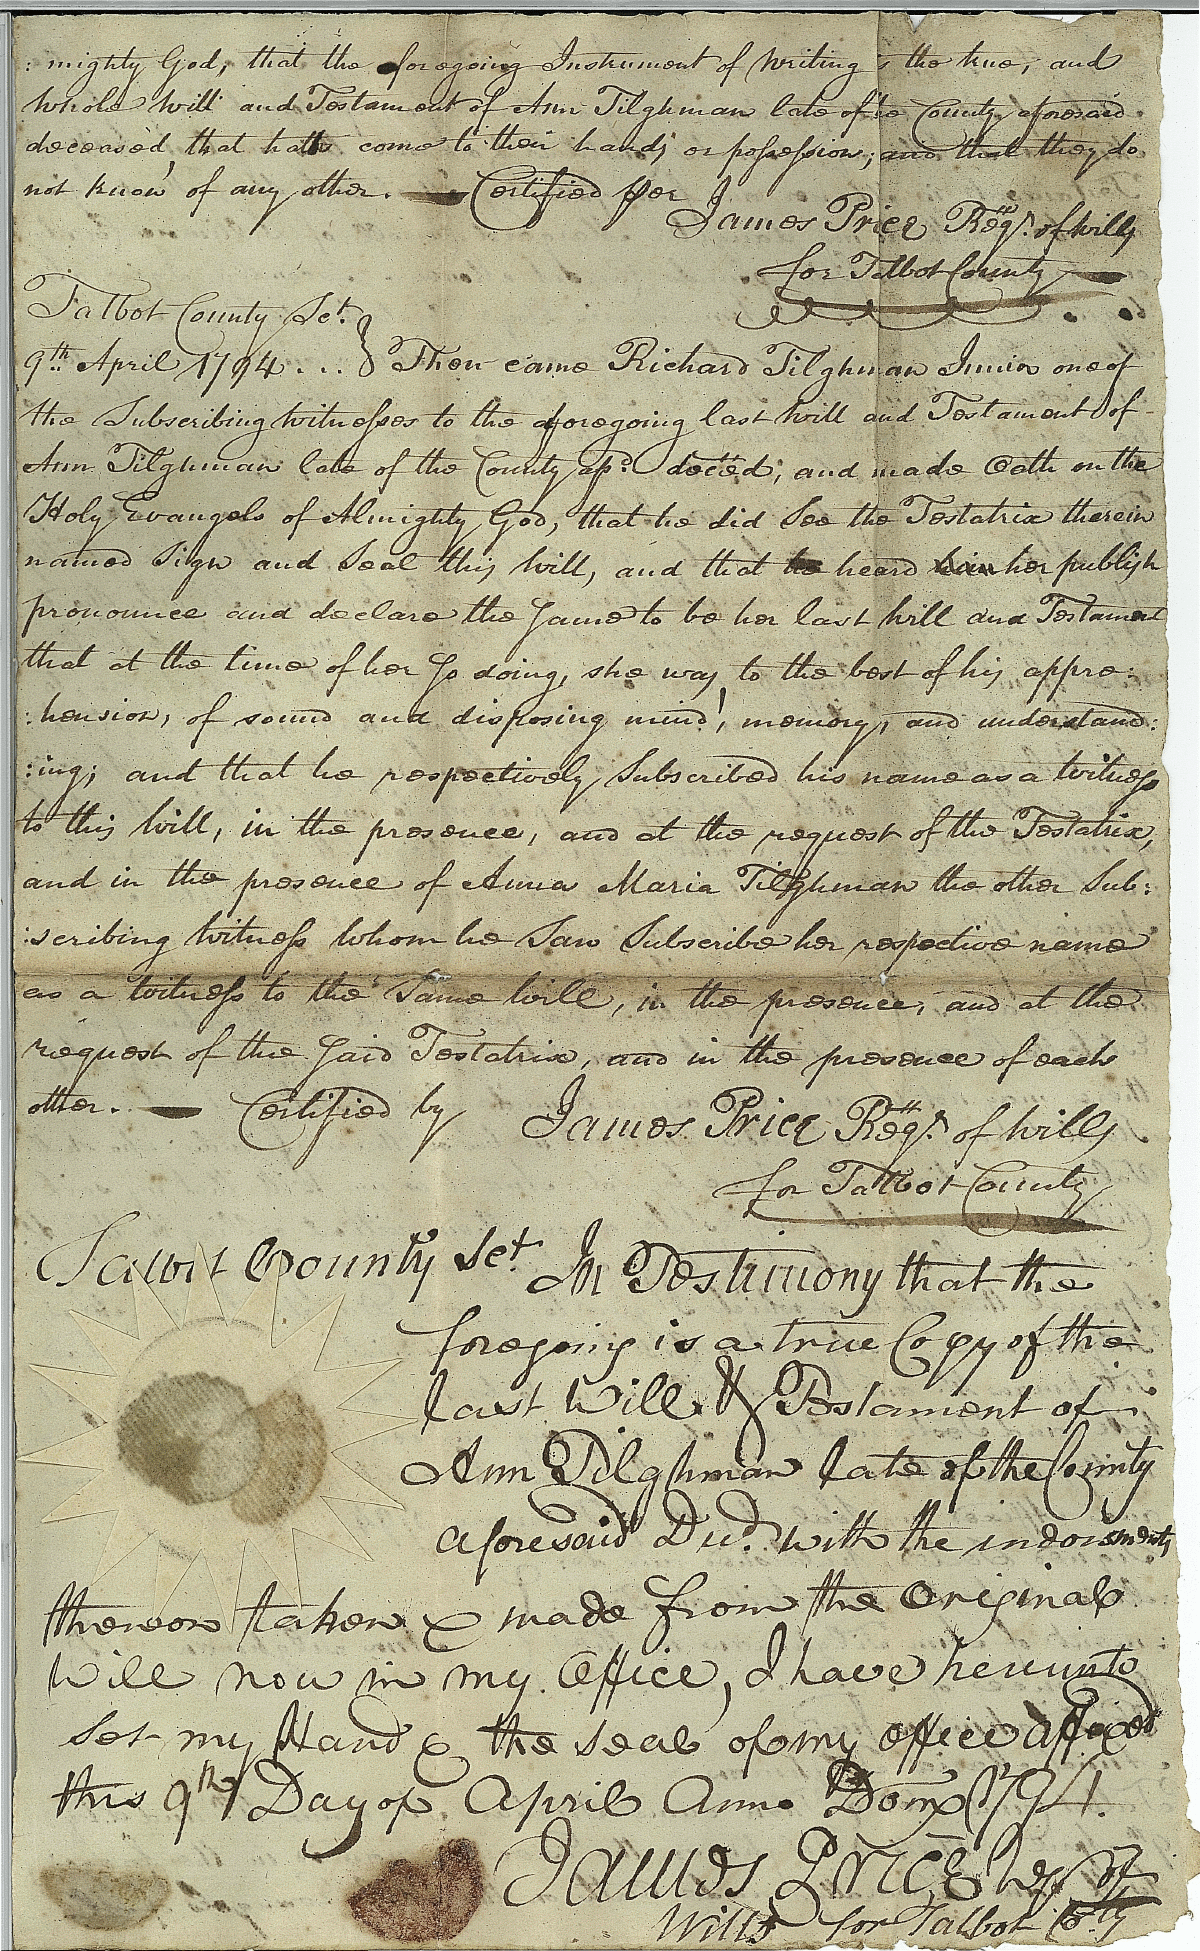 : mighty God, that the foregoing Instrument of Writing is the true, and
whole Will and Testament of Ann Tilghman late of the County aforesaid
deceased, that hath come to their hands or possession; and that they do
not know of any other. — Certified per
James Price Regr. of Wills
for Talbot County
Talbot County Sct.
9th April 1794 . . . } Then came Richard Tilghman Junior one of
the Subscribing Witnesses to the foregoing last Will and Testament of
Ann Tilghman late of the County afd. deceed, and made Oath on the
Holy Evangels of Almighty God, that he did See the Testatrix therein
named Sign and Seal this Will, and that he heard him her publish
pronounce and declare the Same to be her last Will and Testament
that at the time of her So doing, she was, to the best of his appre:
:hension, of sound and disposing mind, memory, and understand:
:ing; and that he respectively Subscribed his name as a Witness
to this Will, in the presence, and at the request of the Testatrix,
and in the presence of Anna Maria Tilghman the other Sub:
:scribing Witness whom he Saw Subscribe her respective name
as a Witness to the Same Will, in the presence, and at the
request of the Said Testatrix, and in the presence of each
other. — Certified by James Price Regr. of Wills
for Talbot County
Talbot County Sct. In Testimony that the
foregoing is a true Copy of the
last Will & Testament of
Ann Tilghman late of the County
aforesaid Decd. with the indorsments
thereon taken & made from the Original
Will now in my Office, I have hereunto
Set my Hand & the seal of my office affixed
this 9th Day of April Anno Dom. 1794.
James Price Regr of
Wills for Talbot Coty